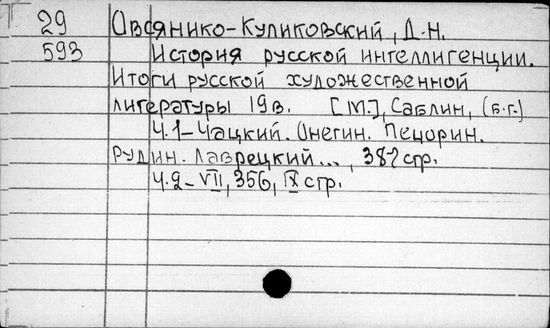 29 Овсянико-Куликовский, Д.Н.
593 История русской интеллигенции.
Итоги русской художественной
литературы 19в. [М.], Саблин, (б.г.)
Ч.1-Чацкий. Онегин. Печорин.
Рудин. Лаврецкий..., 387 стр.
Ч.2-VII, 356, IX стр.